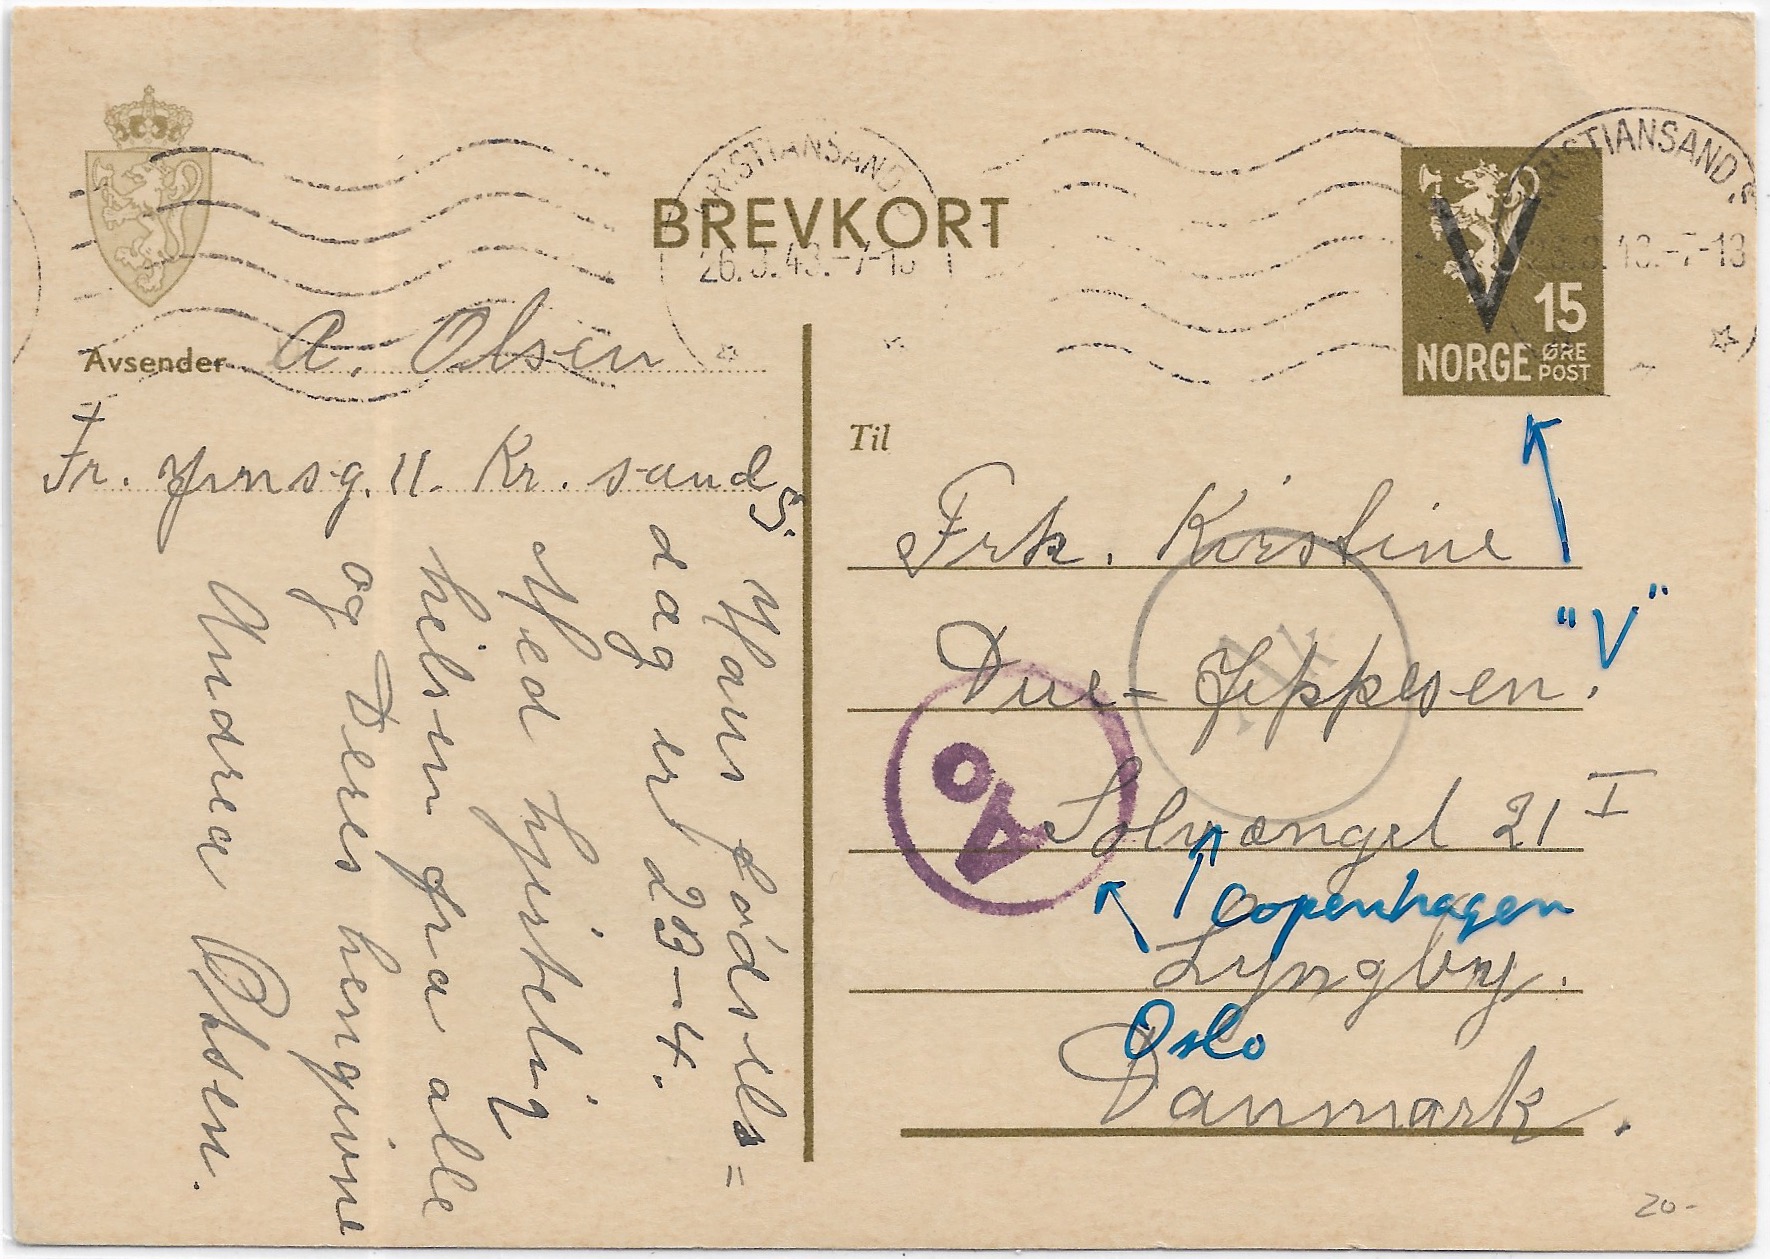 BREVKORT
KRISTIANSAND. S
26.3.43.-7-13
KRISTIANSAND. S
26.3.43.-7-13
V
15
NORGE ØRE
POST
Avsender A. Olsen
Kr. sand S.
Hans Fødsels=
dag er 29-4.
Med hjertelig
hilsen fra alle
og Deres hengivne
Andrea Olsen.
Til
Frk. Kirstine
Due-Jeppesen.
Solvænget 21 I
Lyngby.
Danmark.
Ao
"V"
Copenhagen
Oslo
20-